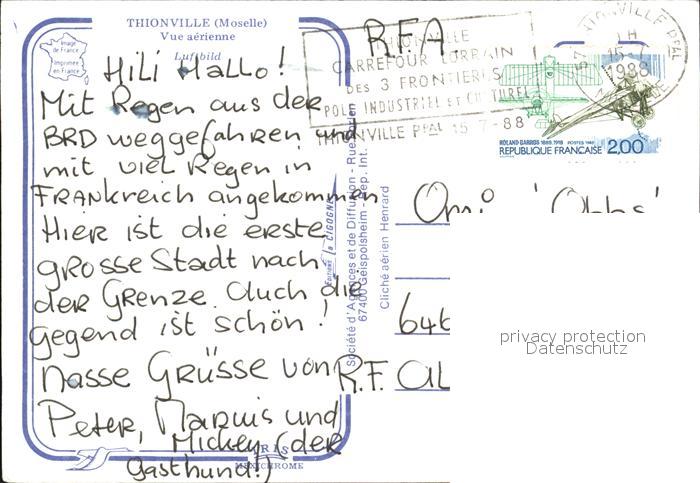 THIONVILLE (Moselle)
Vue aérienne
Luftbild
Image de France
Imprimée en France
Hili Hallo!
Mit Regen aus der
BRD weggefahren und
mit viel Regen in
FRANKreich angekommen
Hier ist die erste
grosse Stadt nach
der Grenze. Auch die
gegend ist schön!
Nasse Grüsse von
Peter, Markus und
Mickey (der
Gasthund!)
IRIS
MEXICHROME
Société d'Agences et de Diffusion - Rue
67400 Geispolsheim - Dép. Int.
Cliché aérien Henrard
LA CIGOGNE
R.F.A.
THIONVILLE
CARREFOUR LORRAIN
DES 3 FRONTIERES
POLE INDUSTRIEL et CULTUREL
THIONVILLE PPAL 15-7-88
57 THIONVILLE PPAL
H
15-7
1988
MOSELLE
ROLAND GARROS 1888.1918 POSTES 1988
REPUBLIQUE FRANCAISE 2,00
646
R.F. AL
privacy protection
Datenschutz